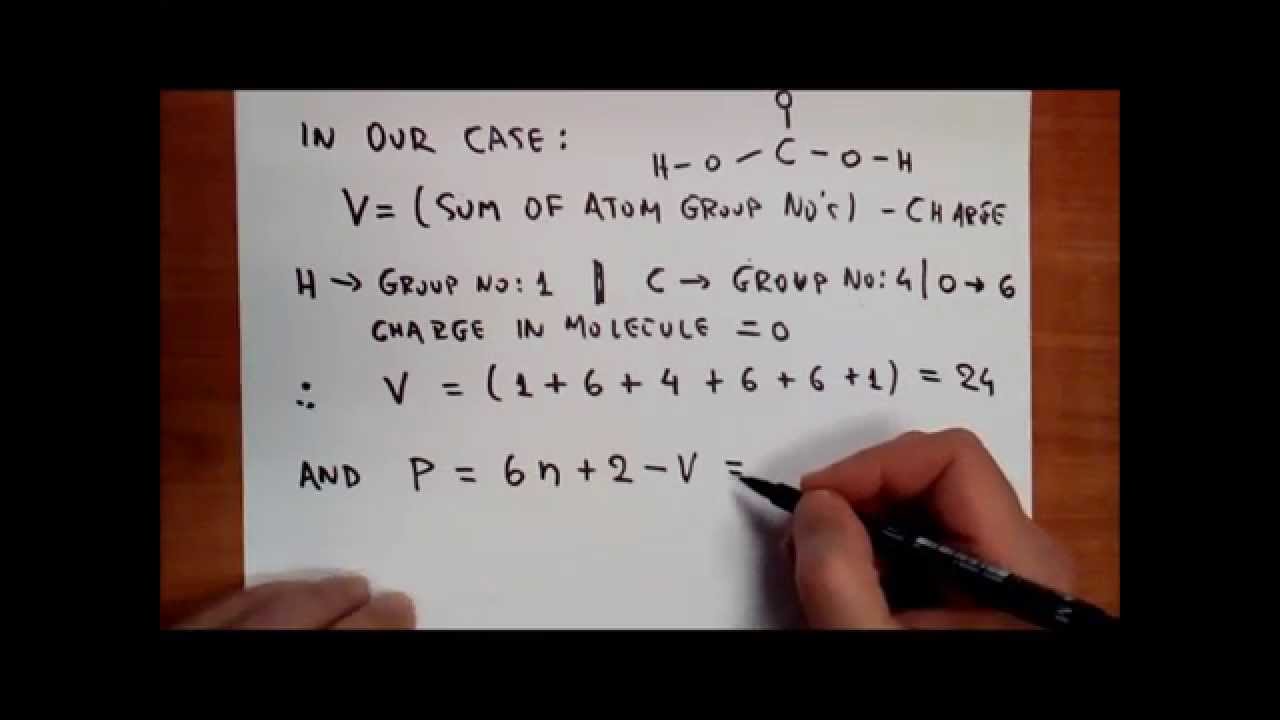 IN OUR CASE:
O
H-O-C-O-H
V=(SUM OF ATOM GROUP NO'S) - CHARGE
H → GROUP NO: 1 || C → GROUP NO: 4 | O → 6
CHARGE IN MOLECULE = 0
∴ V = (1+6+4+6+6+1) = 24
AND P = 6n+2-V =